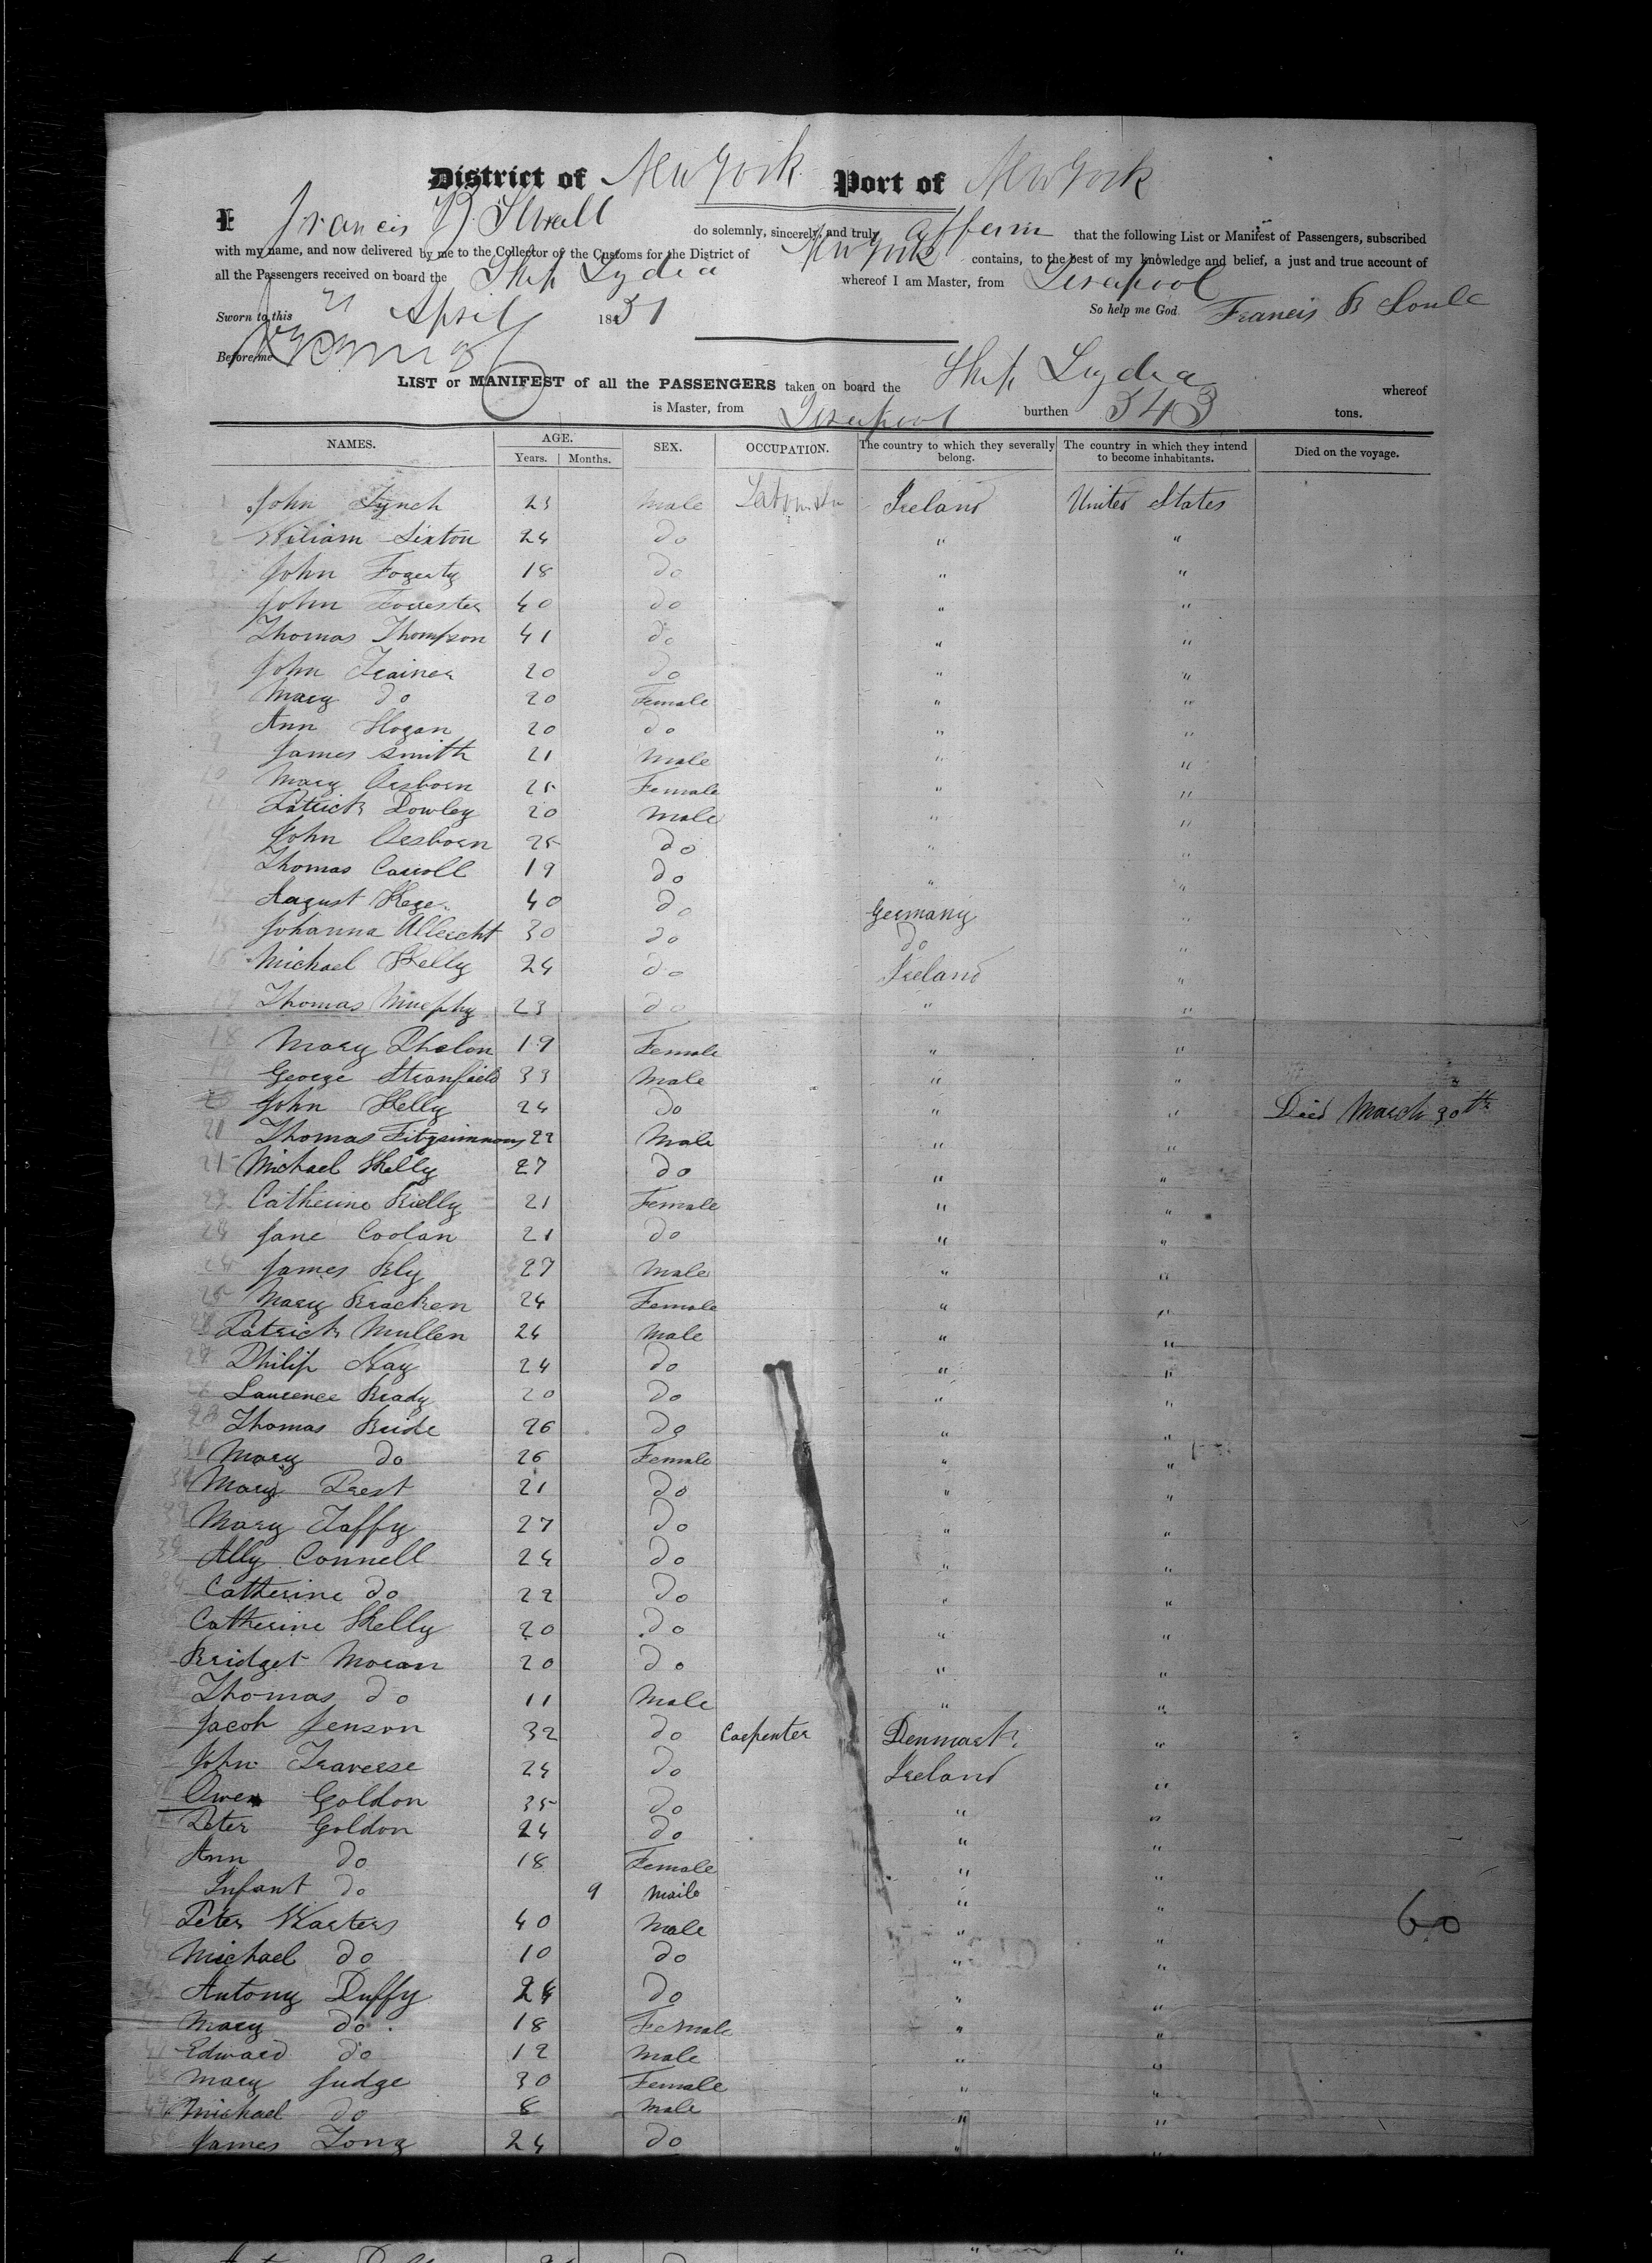 District of New York Port of New York
I Francis B. do solemnly, sincerely, and truly affirm that the following List or Manifest of Passengers, subscribed
with my name, and now delivered by me to the Collector of the Customs for the District of New York contains, to the best of my knowledge and belief, a just and true account of
all the Passengers received on board the Ship Lydia whereof I am Master, from Liverpool
Sworn to this 21 April 1851 So help me God Francis B Soule
Before me
LIST or MANIFEST of all the PASSENGERS taken on board the Ship Lydia whereof
is Master, from Liverpool burthen 543 tons.
NAMES. AGE. SEX. OCCUPATION. The country to which they severally belong. The country in which they intend to become inhabitants. Died on the voyage.
Years. Months.
1 John Lynch 23 Male Ireland United States
2 William Sixton 24 do " "
3 John Fogerty 18 do " "
John Forrester 40 do " "
Thomas Thompson 41 do " "
John Trainer 20 do " "
Mary do 20 Female " "
Ann Hogan 20 do " "
9 James Smith 21 Male " "
10 Mary Osborn 25 Female " "
Patrick Dowley 20 Male " "
John Osborn 25 do " "
Thomas Carroll 19 do " "
14 August Hege 40 do Germany "
15 Johanna Albrecht 30 do do "
16 Michael Kelly 24 do Ireland "
17 Thomas Murphy 23 do " "
18 Mary Phelon 19 Female " "
19 George Stranfield 33 Male " "
20 John Kelly 24 do " " Died March 30th
20 Thomas Fitzsimmons 22 Male " "
21 Michael Kelly 27 do " "
22 Catherine Rielly 21 Female " "
23 Jane Coolan 21 do " "
24 James Bly 27 Male " "
25 Mary Bracken 24 Female " "
Patrick Mullen 24 Male " "
27 Philip Nay 24 do " "
28 Laurence Brady 20 do " "
29 Thomas Bride 26 do " "
30 Mary do 26 Female " "
31 Mary Prest 21 do " "
32 Mary Taffy 27 do " "
33 Ally Connell 24 do " "
34 Catherine do 22 do " "
Catherine Kelly 20 do " "
Bridget Moran 20 do " "
Thomas do 11 Male " "
Jacob Jenson 32 do Carpenter Denmark "
John Traverse 24 do Ireland "
Owen Goldon 35 do " "
Peter Goldon 24 do " "
Ann do 18 Female " "
Infant do 9 Male " "
Peter Karters 40 Male " " 60
Michael do 10 do " "
Antony Duffy 24 do " "
Mary do 18 Female " "
Edward do 12 Male " "
Mary Judge 30 Female " "
Michael do 8 Male " "
James Long 24 do " "